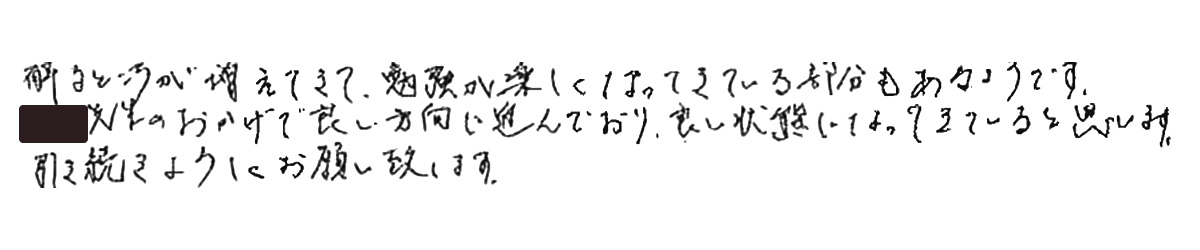 解るところが増えてきて、勉強が楽しくなってきている部分もあるようです。
先生のおかげで良い方向に進んでおり、良い状態になってきていると思います。
引き続きようしくお願い致します。